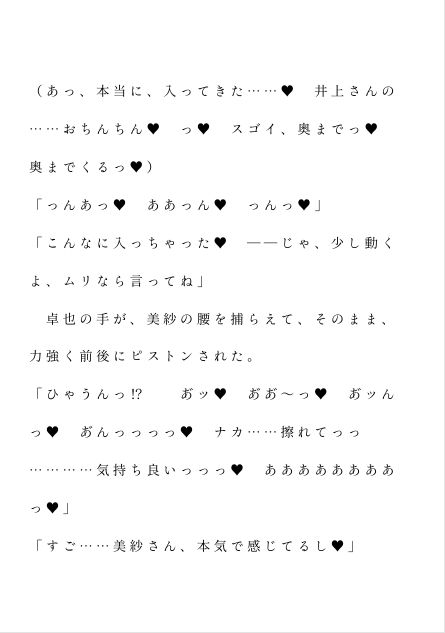 （あっ、本当に、入ってきた……♥　井上さんの
……おちんちん♥　っ♥　スゴイ、奥までっ♥
奥までくるっ♥）
「っんあっ♥　ああっん♥　っんっ♥」
「こんなに入っちゃった♥　――じゃ、少し動く
よ、ムリなら言ってね」
　卓也の手が、美紗の腰を捕らえて、そのまま、
力強く前後にピストンされた。
「ひゃうんっ⁉　　お゛ッ♥　お゛お゛～っ♥　お゛ッん
っ♥　お゛んっっっっ♥　ナカ……擦れてっっ
…………気持ち良いっっっ♥　ああああああああ
っ♥」
「すご……美紗さん、本気で感じてるし♥」